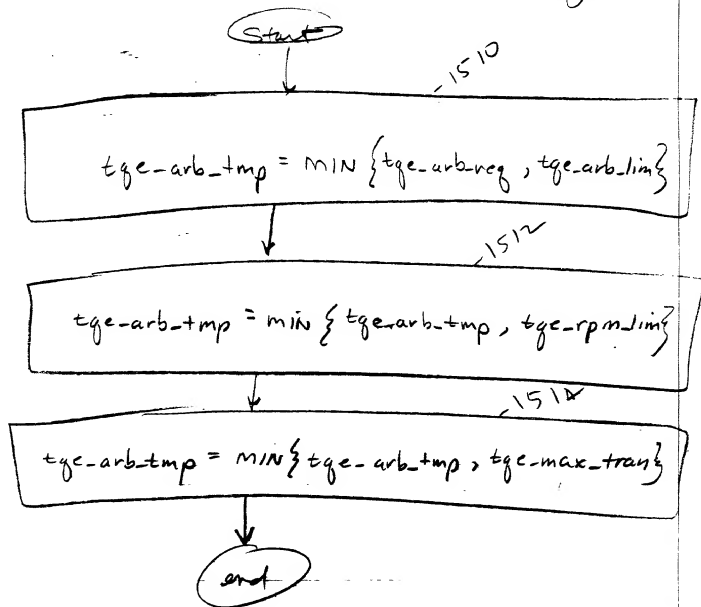 Start
1510
tqe_arb_tmp = MIN {tqe_arb_req , tqe_arb_lim}
1512
tqe_arb_tmp = min {tqe_arb_tmp , tqe_rpm_lim}
1514
tqe_arb_tmp = MIN { tqe_arb_tmp , tqe_max_tran}
end